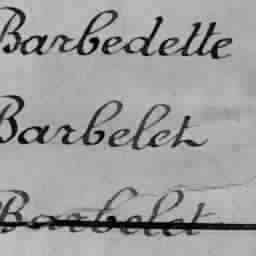 Barbedette
Barbelet
Barbelet